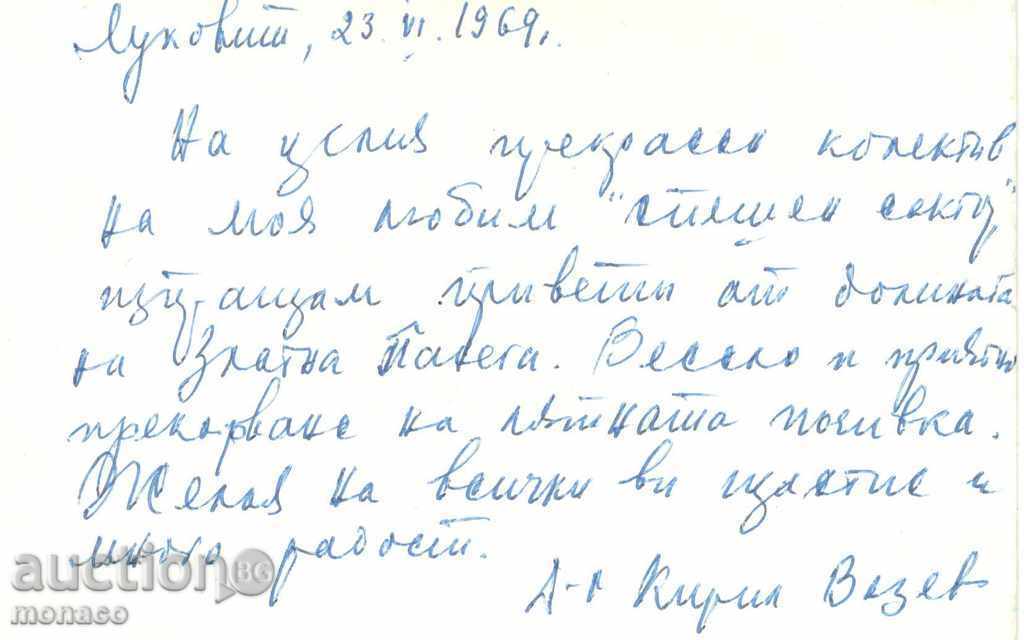 Луковит, 23.VI.1969г.
На целия прекрасен колектив
на моя любим "спешен сектор"
изпращам привети от долината
на Златна Панега. Весело и приятно
прекарване на лятната почивка.
Желая на всички ви щастие и
много радост.
Д-р Кирил Вазев
auction BG
monaco